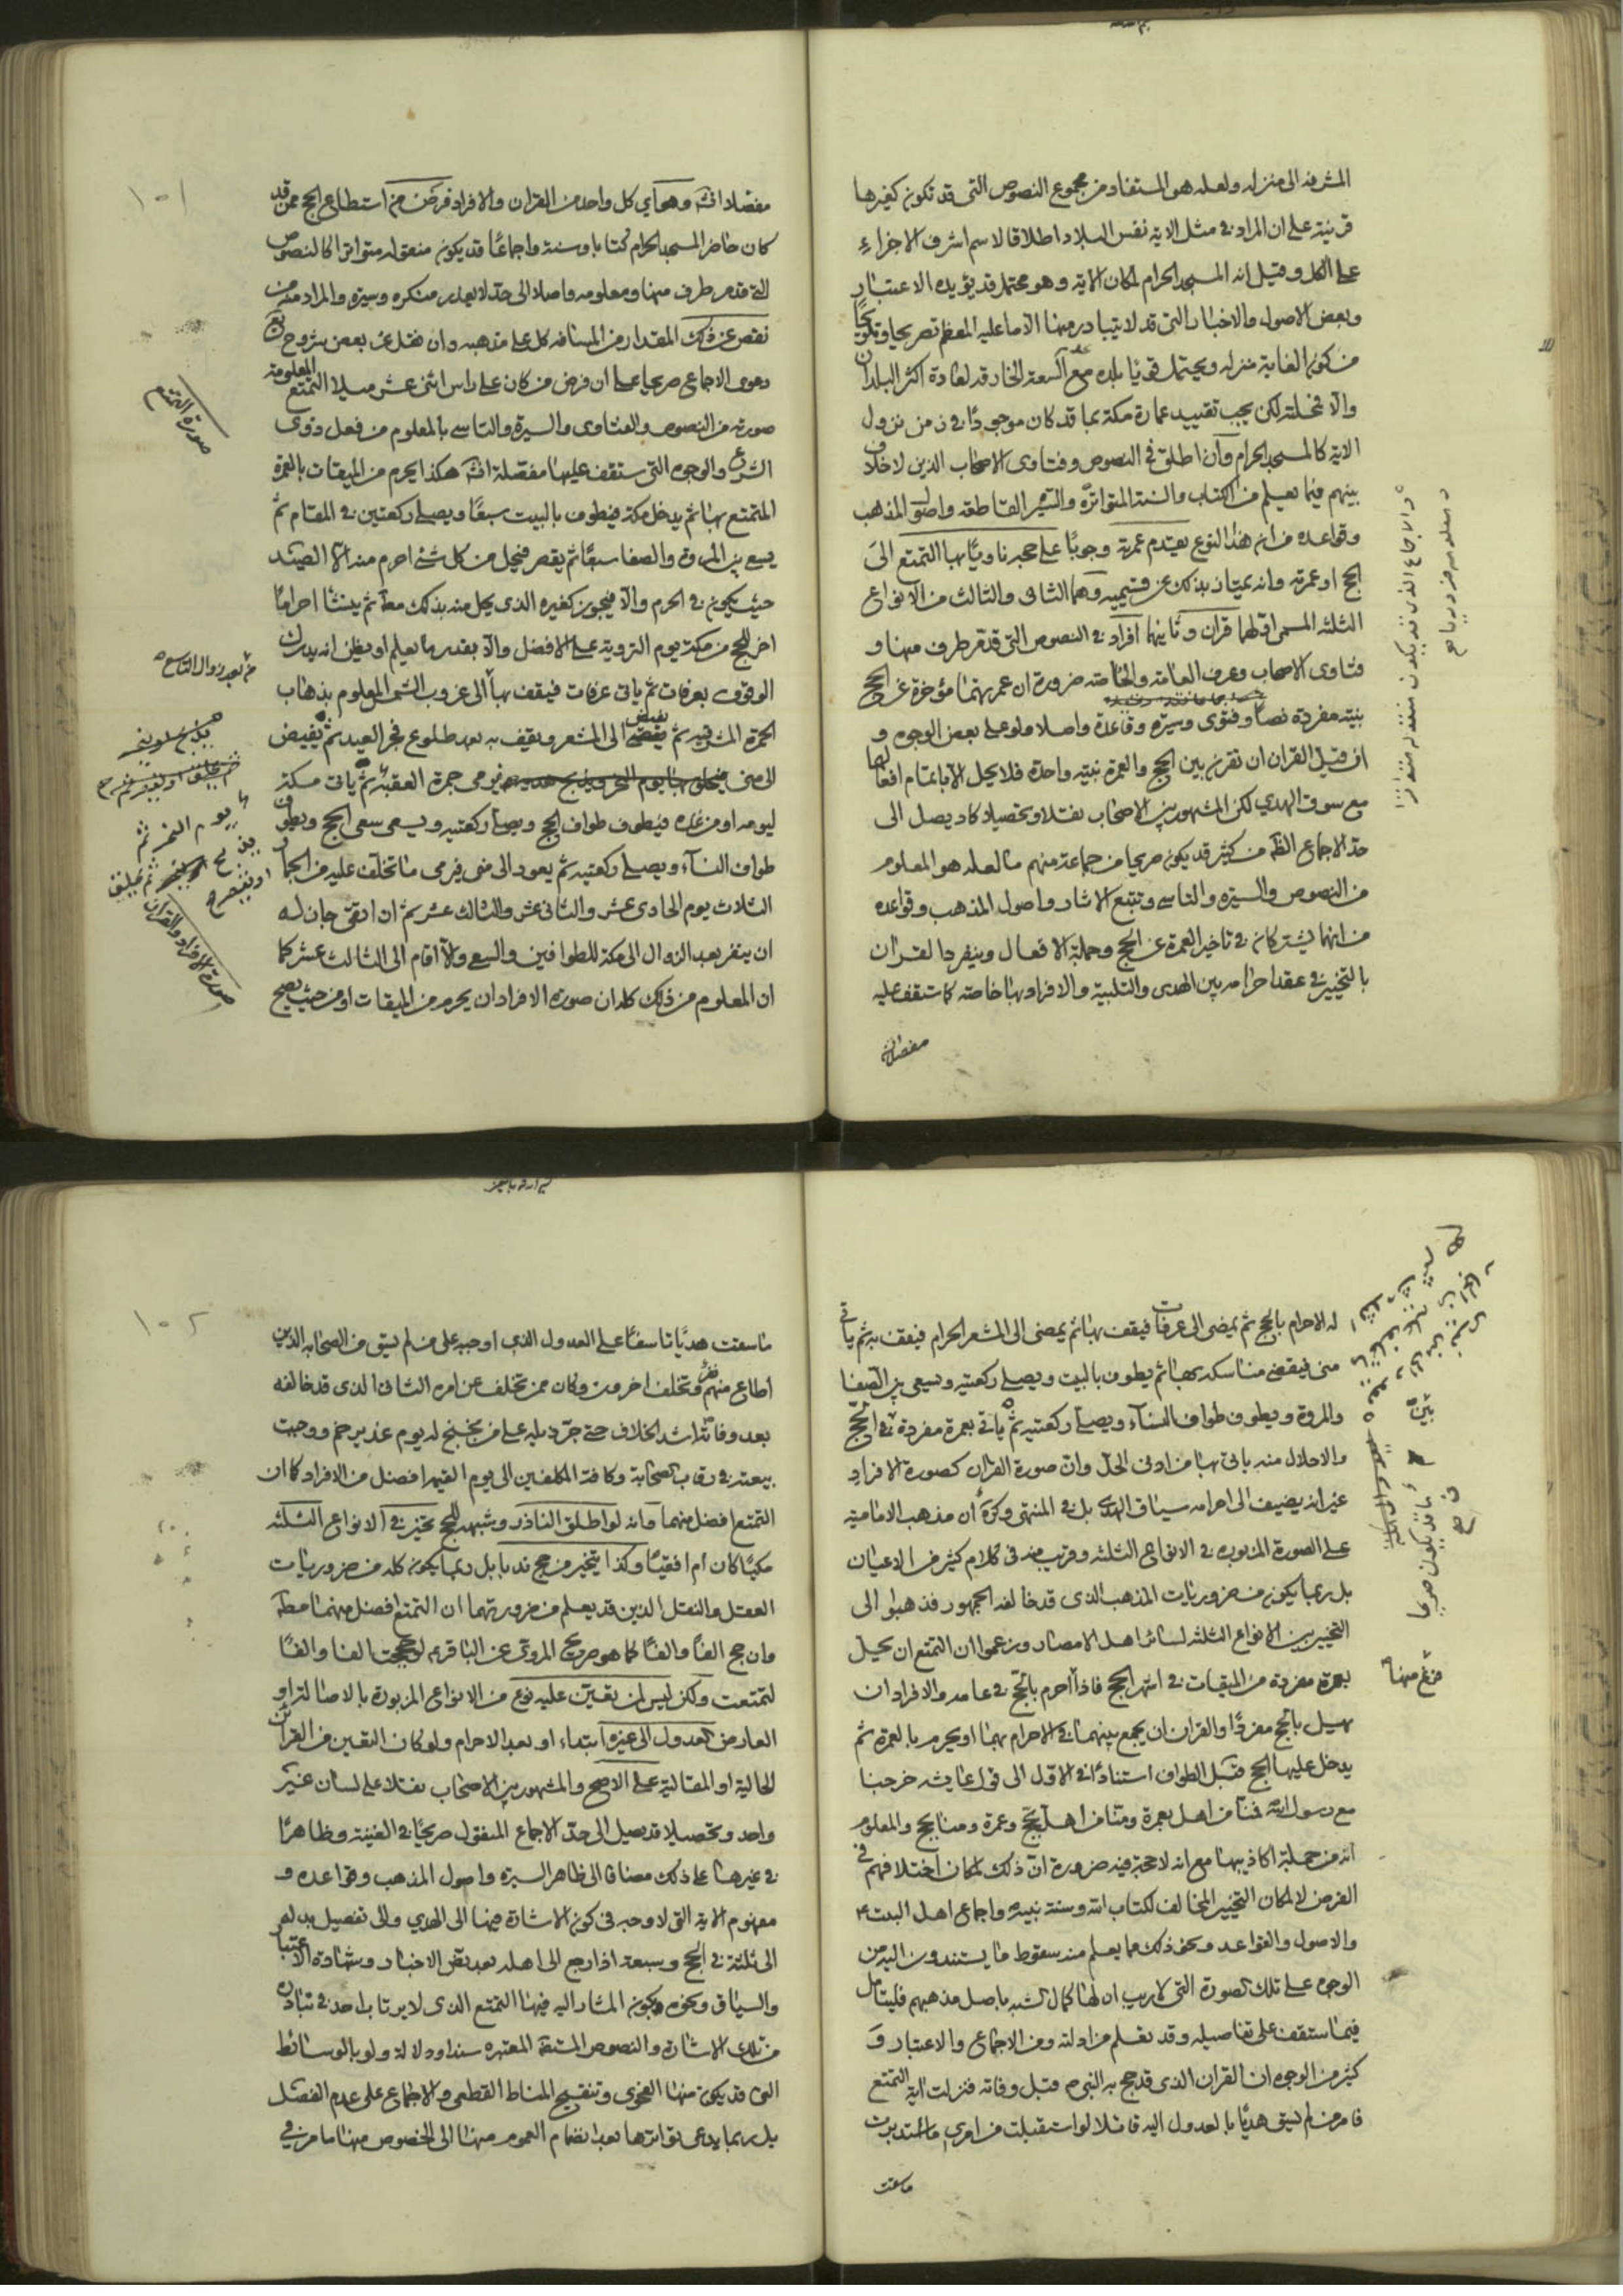 المشرفه الى منزله ولعله هو المستفاد من مجموع النصوص التى قد تكون كغيرها
قرينة على ان المراد فى مثل الاية نفس البلاد اطلاقا لاسم اشرف الاجزاء
على الكل وقيل انه المسجد الحرام لمكان الاية وهو محتمل قد يؤيده الاعتبار
وبعض الاصول والاخبار التى قد لا يتبادر منها الا ما عليه المعظم تصريحا وتلويحًا
من كون الغاية منزله ويحتمل قويًا بلده مع السعة الخارقة لعادة اكثر البلدان
والا فمحلته لكن يجب تقييد عمارة مكة بما قد كان موجودًا فى زمن نزول
الاية كالمسجد الحرام وان اطلق فى النصوص وفتاوى الاصحاب الذين لا خلاف
بينهم فيما يعلم من الكتاب والسنة المتواترة والسير القاطعة واصول المذهب
وقواعده من ان هذا النوع يقدم عمرته وجوبًا على حجه ناويًا بها التمتع الى
الحج او عمرته وانه يمتاز بذلك عن قسيميه وهما الثانى والثالث من الانواع
الثلثه المسمى اولهما قران وثانيهما افراد فى النصوص التى قد مر طرف منها و
فتاوى الاصحاب وعرف العامة والخاصة ضرورة ان عمرتهما مؤخرة عن الحج
بنية مفردة نصًا وفتوى وسيرة وقاعدة واصلا ولو على بعض الوجوه و
ان قيل القران ان تقرن بين الحج والعمرة بنية واحدة فلا يحل الا باتمام افعالهما
مع سوق الهدي لكن المشهور بين الاصحاب نقلا وتحصيلا كاد يصل الى
حد الاجماع الظه من كثير قد يكون صريحا من جماعة منهم ما لعله هو المعلوم
من النصوص والسيرة والتاسى وتتبع الاثار واصول المذهب وقواعده
من انهما يشتركان فى تاخير العمرة عن الحج وجملة الافعال وينفرد القران
بالتخيير فى عقد احرامه بين الهدى والتلبية والافراد بها خاصة كما ستقف عليه
مفصلا انشه
مفصلا انشه وهو اي كل واحد من القران والافراد فرض من استطاع الحج ممن قد
كان حاضر المسجد الحرام كتابا وسنة واجماعًا قد يكون منقوله متواترا كالنصوص
التى قد مر طرف منها ومعلومه واصلا الى حد لا يعذر منكره وسيرة والمراد منه من
نقص عن ذلك المقدار من المسافة كل على مذهبه وان نقل عن بعض شروح يع
دعوى الاجماع صريحا على ان فرض من كان على راس اثنى عشر ميلا التمتع المعلومة
صورته من النصوص والفتاوى والسيرة والتاسى بالمعلوم من فعل ذوى
الشرع والوجوه التى ستقف عليها مفصلة انشه هكذا يحرم من الميقات بالعمرة
المتمتع بها ثم يدخل مكة فيطوف بالبيت سبعًا ويصلى ركعتين فى المقام ثم
يسعى بين المروة والصفا سبعًا ثم يقصر فيحل من كل شئ احرم منه الا الصيد
حيث يكون فى الحرم والا فيجوز كغيره الذى يحل منه بذلك معا ثم ينشئ احرامًا
اخر للحج من مكة يوم التروية على الافضل والا بقدر ما يعلم او يظن انه يدرك
الوقوف بعرفات ثم ياتى عرفات فيقف بها الى غروب الشمس المعلوم بذهاب
الحمرة المشرقيه ثم يفيض الى المشعر ويقف به بعد طلوع فجر العيد ثم يفيض
الى منى فيرمى جمرة العقبة ثم ياتى مكة
ليومه او من غده فيطوف طواف الحج ويصلى ركعتيه ويسعى سعى الحج ويطوف
طواف النسآء ويصلى ركعتيه ثم يعود الى منى فيرمى ما تخلف عليه من الجمار
الثلاث يوم الحادى عشر والثانى عشر والثالث عشر ثم ان اتقى جاز له
ان ينفر بعد الزوال الى مكة للطوافين والسعى والا اقام الى الثالث عشر كما
ان المعلوم من ذلك كله ان صورة الافراد ان يحرم من الميقات او من حيث يصح
صورة التمتع
من بعد زوال التاسع
يوم النحر ثم
صورة الافراد والقران
١٠١
له الاحرام بالحج ثم يمضى الى عرفات فيقف بها ثم يمضى الى المشعر الحرام فيقف به ثم ياتى
منى فيقضى مناسكه بها ثم يطوف بالبيت ويصلى ركعتيه ويسعى بين الصفا
والمروة ويطوف طواف النسآء ويصلى ركعتيه ثم ياتى بعمرة مفردة بعد الحج
والاحلال منه ياتى بها من ادنى الحل وان صورة القران كصورة الافراد
غير انه يضيف الى احرامه سياق الهدى بل فى المنتهى وكره ان مذهب الامامية
على الصورة المزبوره فى الانواع الثلثه وقريب منه فى كلام كثير من الاعيان
بل ربما يكون من ضروريات المذهب الذى قد خالفه الجمهور فذهبوا الى
التخيير بين الانواع الثلثه لسائر اهل الامصار وزعموا ان التمتع ان يحل
بعمرة مفردة من الميقات فى اشهر الحج فاذا احرم بالحج فى عامه والافراد ان
يهل بالحج مفردًا والقران ان يجمع بينهما فى الاحرام بهما او يحرم بالعمرة ثم
يدخل عليها الحج قبل الطواف استنادًا فى الاول الى قول عايشه خرجنا
مع رسول الله فمنا من اهل بعمرة ومنا من اهل بحج وعمرة ومنا بحج والمعلوم
انه من جملة اكاذيبها مع انه لا حجة فيه ضرورة ان ذلك لمكان اختلافهم فى
الفرض لا لمكان التخيير المخالف لكتاب الله وسنة نبيه واجماع اهل البيت ع
والاصول والقواعد ونحو ذلك مما يعلم منه سقوط ما يستندون اليه من
الوجوه على تلك الصورة التى لا ريب ان لها كمال الشبه باصل مذهبهم فليتامل
فيما ستقف على تفاصيله وقد تعلم من ادلته ومن الاجماع والاعتبار و
كثير من الوجوه ان القران الذى قد حج به النبى ص قبل وفاته فنزلت اية التمتع
فامر من لم يسق هديًا بالعدول اليه قائلا لو استقبلت من امري ما استدبرت
ما سقت
ما سقت هديًا تاسفًا على العدول الذى اوجبه على من لم يسق من الصحابه الذين
اطاع منهم نفر وتخلف اخرون وكان ممن تخلف عن امره الثانى الذى قد خالفه
بعد وفاته اشد الخلاف حتى جرد عليه على من بخبخ له يوم غدير خم ووجبت
بيعته فى رقاب الصحابة وكافة المكلفين الى يوم القيمه افضل من الافراد كما ان
التمتع افضل منهما وانه لو اطلق الناذر وشبهه للحج تخير فى الانواع الثلثه
مكيًا كان ام افقيًا وكذا يتخير من حج ندبا بل ربما يكون كله من ضروريات
العقل والنقل الذين قد يعلم من ضرورتهما ان التمتع افضل منهما مطه
وان حج الفًا والفًا كما هو صريح المروى عن الباقر ع لو حججت الفا والفًا
لتمتعت ولكن ليس لمن تعين عليه نوع من الانواع المزبورة بالاصالة او
العارض العدول الى غيره ابتداء او بعد الاحرام ولو كان التعين من القرائن
الحالية او المقالية على الاصح والمشهور بين الاصحاب نقلا على لسان غير
واحد وتحصيلا قد يصل الى حد الاجماع المنقول صريحًا فى الغنية وظاهرًا
فى غيرها على ذلك مضافا الى ظاهر السيرة واصول المذهب وقواعده و
مفهوم الاية التى لا وجه فى كون الاشارة فيها الى الهدي والى تفصيل بدله
الى ثلثة فى الحج وسبعة اذا رجع الى اهله بعد نص الاخبار وشهادة الاعتبار
والسياق ونحوه بكون المشار اليه فيها التمتع الذى لا يرتاب احد فى تبادره
من تلك الاشارة والنصوص المستفيضة المعتبره سندا ودلالة ولو بالوسائط
التى قد يكون منها الفحوى وتنقيح المناط القطعى والاجماع على عدم الفصل
بل ربما يدعى تواترها بعد انضمام العموم منها الى الخصوص منها ما مر فى
١٠٢